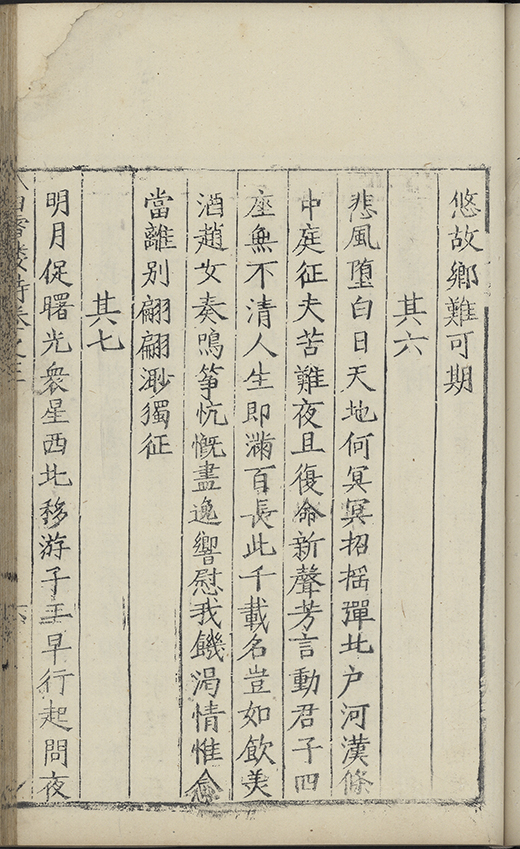 悠故鄉難可期
其六
悲風墮白日天地何冥冥招搖彈北户河漢條
中庭征夫苦難夜且復命新聲芳言動君子四
座無不清人生即滿百長此千載名豈如飲美
酒趙女奏鳴筝忼慨盡逸響慰我饑渴情惟念
當離别翩翩渺獨征
其七
明月促曙光衆星西北移游子王早行起問夜
白雪樓詩卷之三